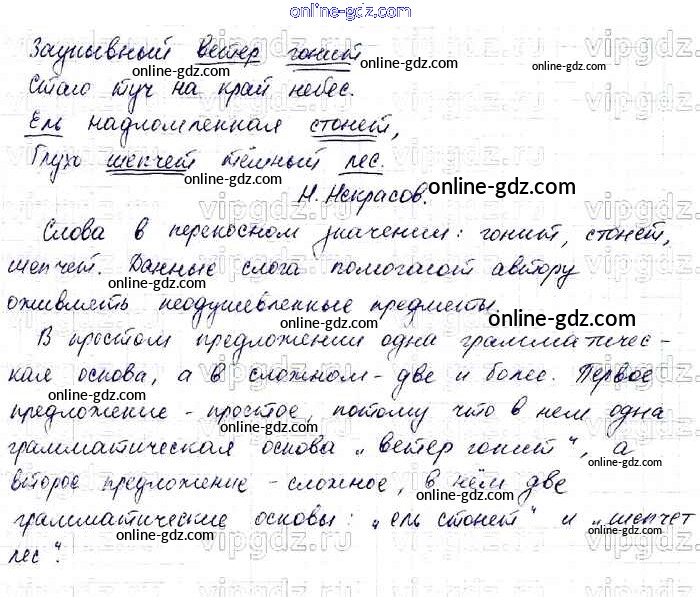 online-gdz.com
Заунывный ветер гонит
online-gdz.com
online-gdz.com
Стаю туч на край небес.
online-gdz.com
Ель надломленная стонет,
online-gdz.com
Глухо шепчет тёмный лес.
online-gdz.com
online-gdz.com
Н. Некрасов.
Слова в переносном значении: гонит, стонет,
online-gdz.com
шепчет. Данные слога помогают автору
online-gdz.com
оживлять неодушевленные предметы.
online-gdz.com
online-gdz.com
В простом предложении одна граммати чес-
кая основа, а в сложном - две и более. Первое
online-gdz.com
предложение - простое, потому что в нем одна
грамматическая основа "ветер гонит", а
online-gdz.com
online-gdz.com
второе предложение - сложное, в нём две
online-gdz.com
грамматические основы: "ель стонет" и "шепчет
online-gdz.com
лес".
online-gdz.com
online-gdz.com